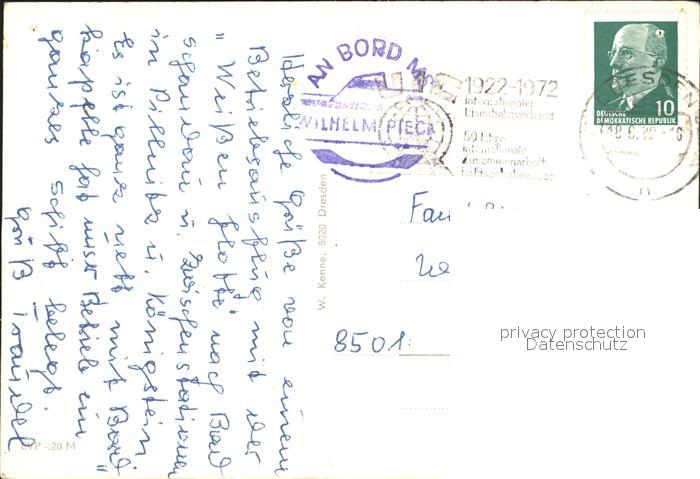 Herzliche Grüße von einem
Betriebsausflug mit der
"Weißen Flotte" nach Bad
Schandau u. Zwischenstationen
in Pillnitz u. Königstein
Es ist ganz nett mit Bord
kapelle hat unser Betrieb ein
ganzes Schiff belegt.
Gruß
EVP -,20 M
W. Kenne, 8020 Dresden
AN BORD MS
WILHELM PIECK
1922-1972
internationaler
Eisenbahnverband
50 Jahre
internationale
Zusammenarbeit
im Eisenbahnwesen
10
DEUTSCHE
DEMOKRATISCHE REPUBLIK
DRESDEN
Fam
8501
privacy protection
Datenschutz